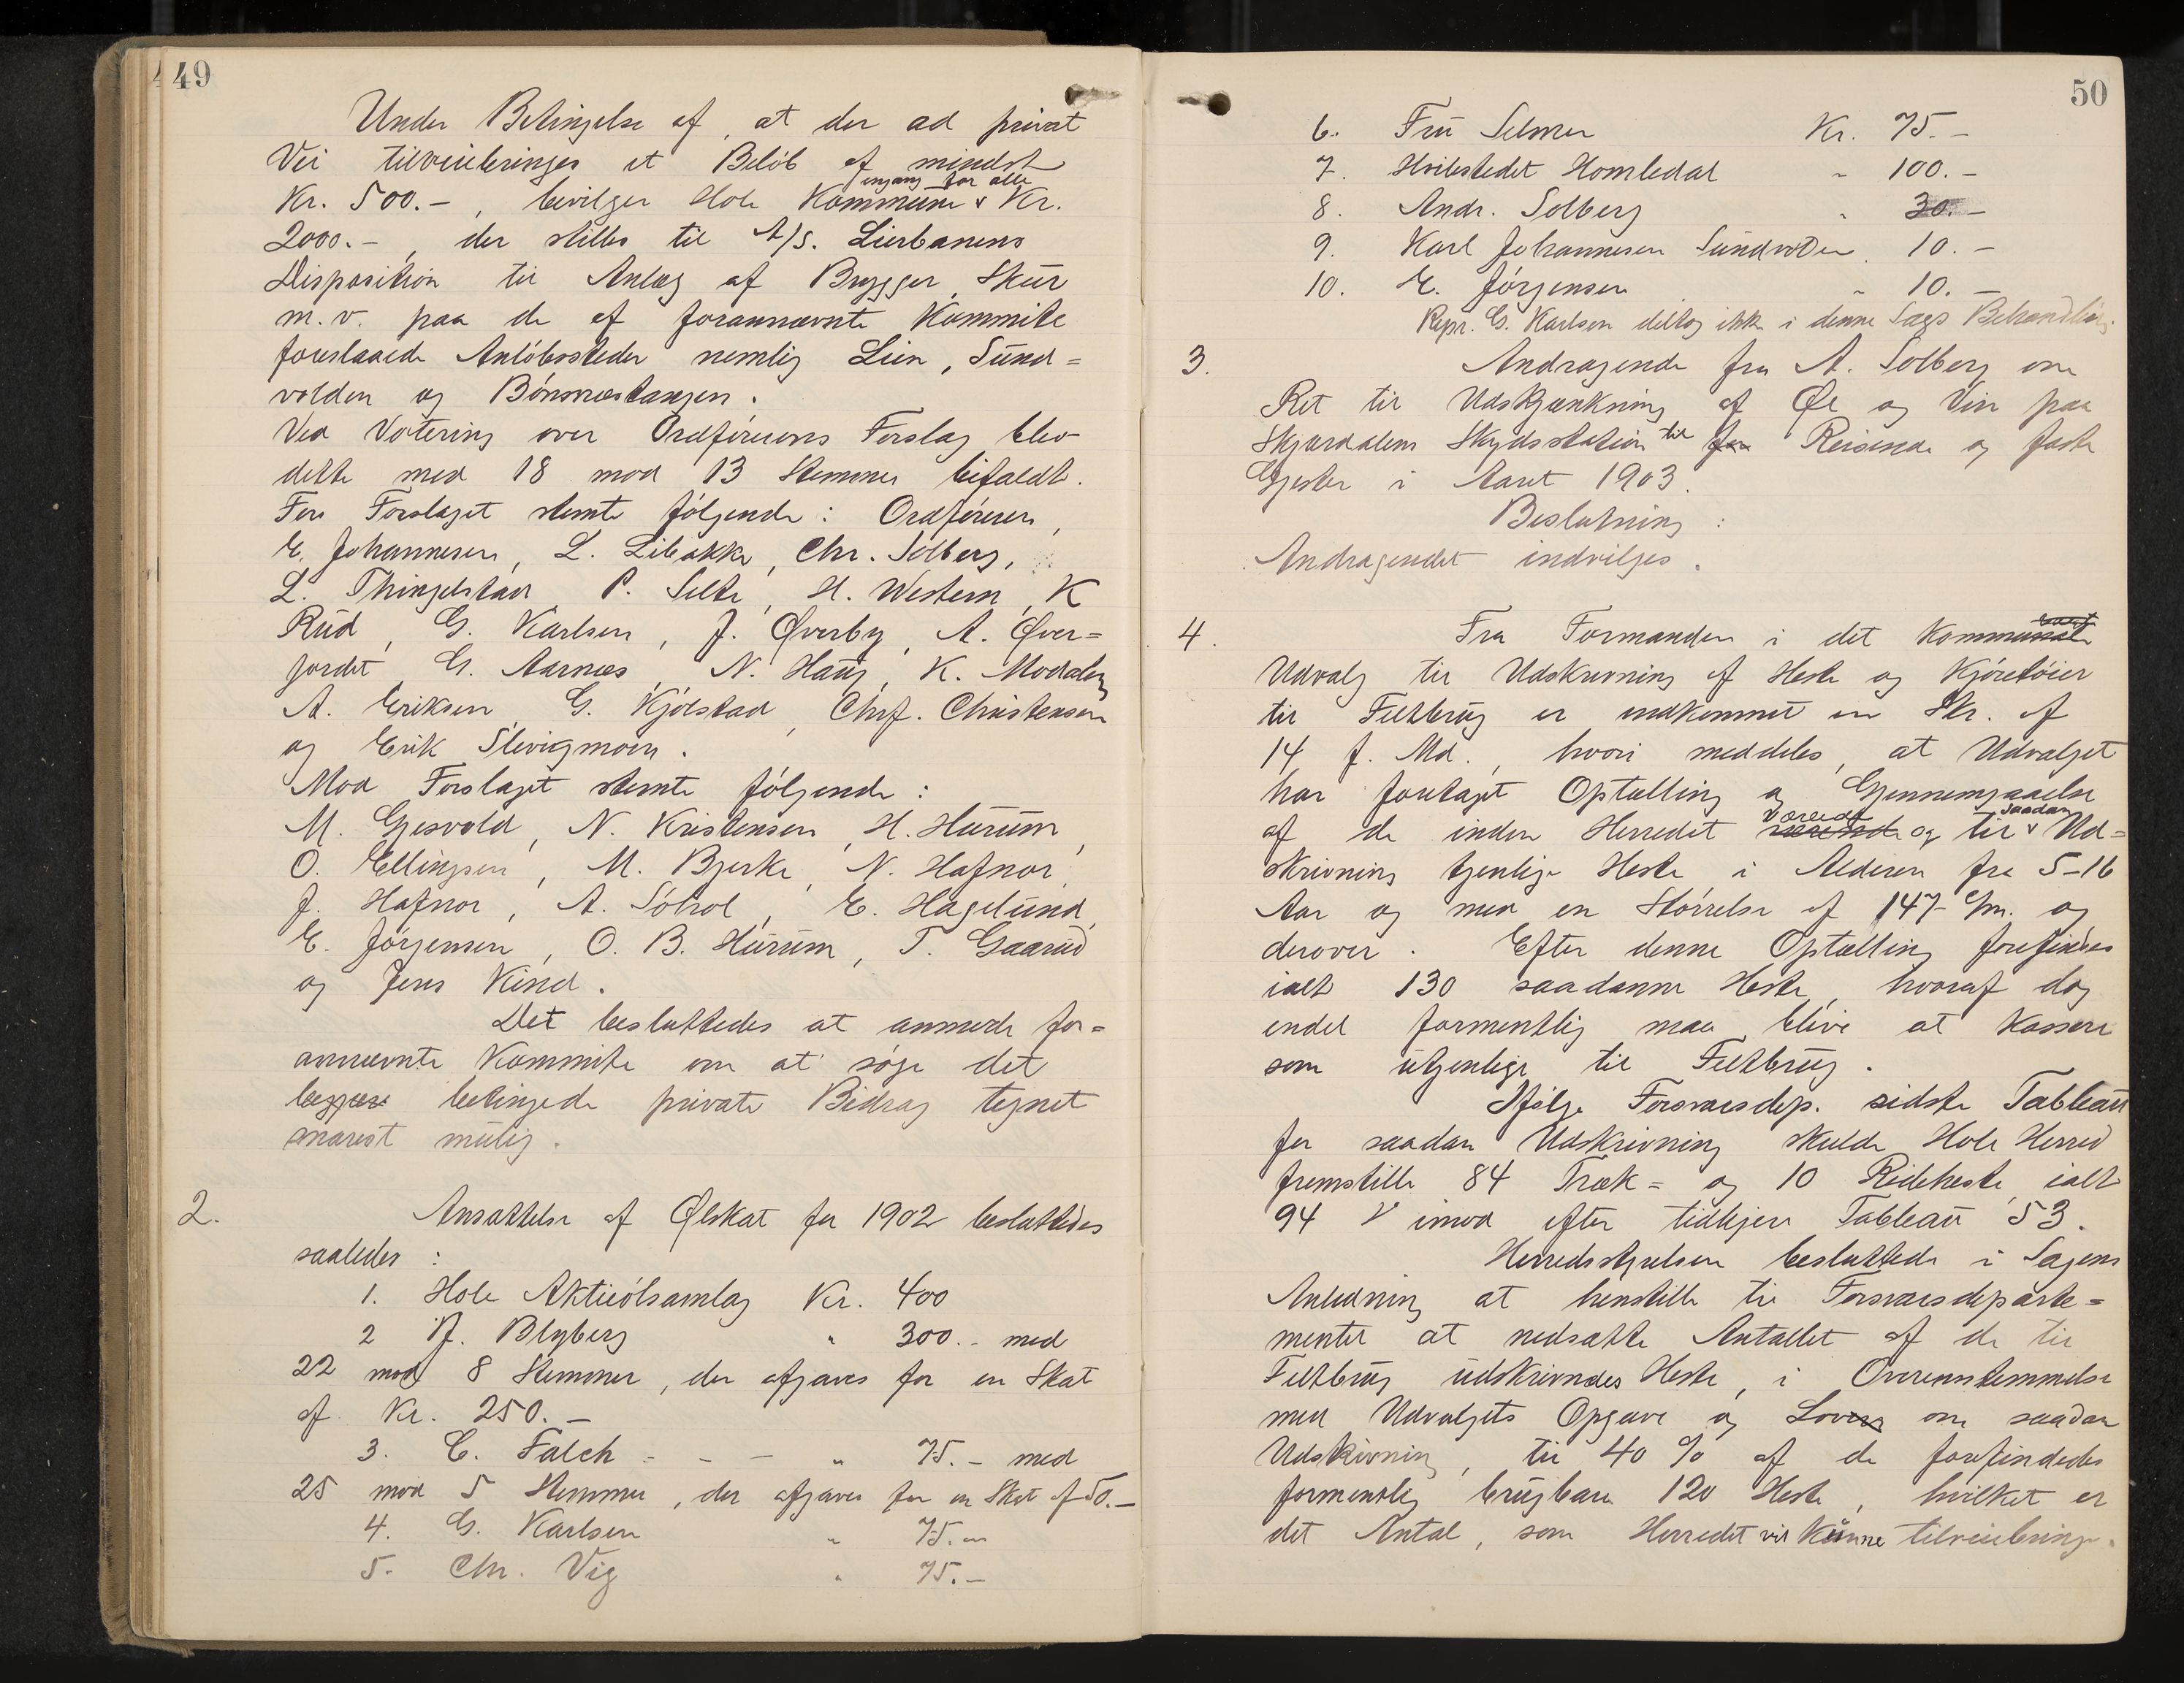 49
Under Betingelse af, at der ad privat
Vei tilveiebringes et Beløb af mindst
Kr. 500.-, bevilger Hole Kommune engang for alle Kr.
2000.-, der stilles til A/S. Lierbanens
Disposition til Anlæg af Brygger, Skur
m.v. paa de af forannævnte Kommite
foreslaaede Anløbssteder nemlig Lien, Sund=
volden og Bønsnæstangen.
Ved Votering over Ordførerens Forslag blev
dette med 18 mod 13 Stemmer bifaldt.
For Forslaget stemte følgende: Ordføreren,
E. Johannesen, L. Libakke, Chr. Solberg,
L. Thingelstad P. Selte, H. Western, K
Rud, G. Karlsen, J. Øverby, A. Øver=
jordet G. Aarnæs, N. Haug, K. Moddalen
A. Eriksen, G. Kjølstad, Chrf. Christensen
og Erik Slevigmoen.
Mod Forslaget stemte følgende:
M. Gjesvold, N. Kristensen, H. Hurum,
O. Ellingsen, M. Bjerke, N. Hafnor,
J. Hafnor, A. Søhol, E. Hagelund,
E. Jørgensen, O. B. Hurum, T. Gaarud
og Jens Kind.
Det besluttedes at anmode for=
annævnte Kommite om at søge det
betingede private Bidrag tegnet
snarest mulig.
2. Ansættelse af Ølskat for 1902 besluttedes
saaledes:
1. Hole Aktieølsamlag Kr. 400
2 A. Blyberg " 300.- med
22 mod 8 Stemmer, der afgaves for en Skat
af Kr. 250.-
3. C. Falch - - - " 75.- med
25 mod 5 Stemmer, der afgaves for en Skat af 50.-
4. G. Karlsen " 75.-
5. Chr. Vig " 75.-
50
6. Fru Selmer Kr. 75.-
7. Hvilestedet Homledal " 100.-
8. Andr. Solberg " 30.-
9. Karl Johannesen Sundvolden. 10.-
10. E. Jørgensen " 10.-
Repr. G. Karlsen deltog ikke i denne Sags Behandling.
3. Andragende fra A. Solberg om
Ret til Udskjænkning af Øl og Vin paa
Skjærdalens Skydsstation til for Reisende og faste
Gjester i Aaret 1903.
Beslutning:
Andragendet indvilges.
4. Fra Formanden i det Kommunale
Udvalg til Udskrivning af Heste og Kjøretøier
til Feltbrug er indkommet en Skr. af
14 f. Md., hvori meddeles, at Udvalget
har foretaget Optælling og Gjennemgaaelse
af de inden Herredet værende og til saadan Ud=
skrivning tjenlige Heste i Alderen fra 5-16
Aar og med en Størrelse af 147 c/m. og
derover. Efter denne Optælling forefindes
ialt 130 saadanne Heste, hvoraf dog
endel formentlig maa blive at kassere
som utjenlige til Feltbrug.
Ifølge Forsvarsdep. sidste Tableau
for saadan Udskrivning skulde Hole Herred
fremstille 84 Træk= og 10 Rideheste, ialt
94 imod efter tidligere Tableau 53.
Herredsstyrelsen besluttede i Sagens
Anledning at henstille til Forsvarsdeparte=
mentet at nedsætte Antallet af de til
Feltbrug udskrivndes Heste, i Overensstemmelse
med Udvalgets Opgave og Loven om saadan
Udskivning, til 40 % af de forefindedes
formentlig brugbare 120 Heste, hvilket er
det Antal, som Herredet vil kunne tilveiebringe.